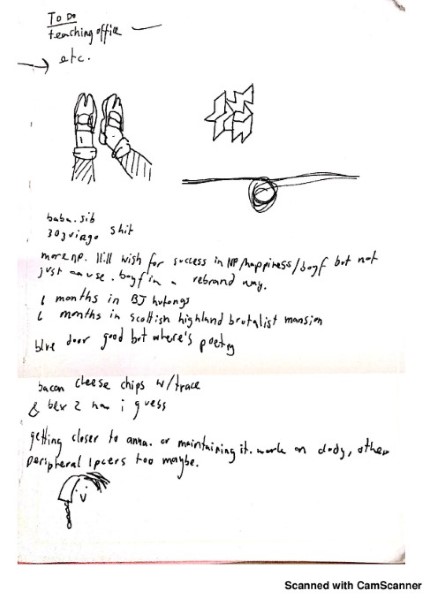 To Do
teaching office
etc.
baba. sib
shit
more np. still wish for success in NP/happiness/boyf but not
just cause. boyf in a rebrand way.
6 months in BJ hutongs
6 months in scottish highland brutalist mansion
blue door good but where's poetry
bacon cheese chips w/trace
& bev 2 nav i guess
getting closer to anna. or maintaining it. work on dody, other
peripheral ipcers too maybe.
Scanned with CamScanner